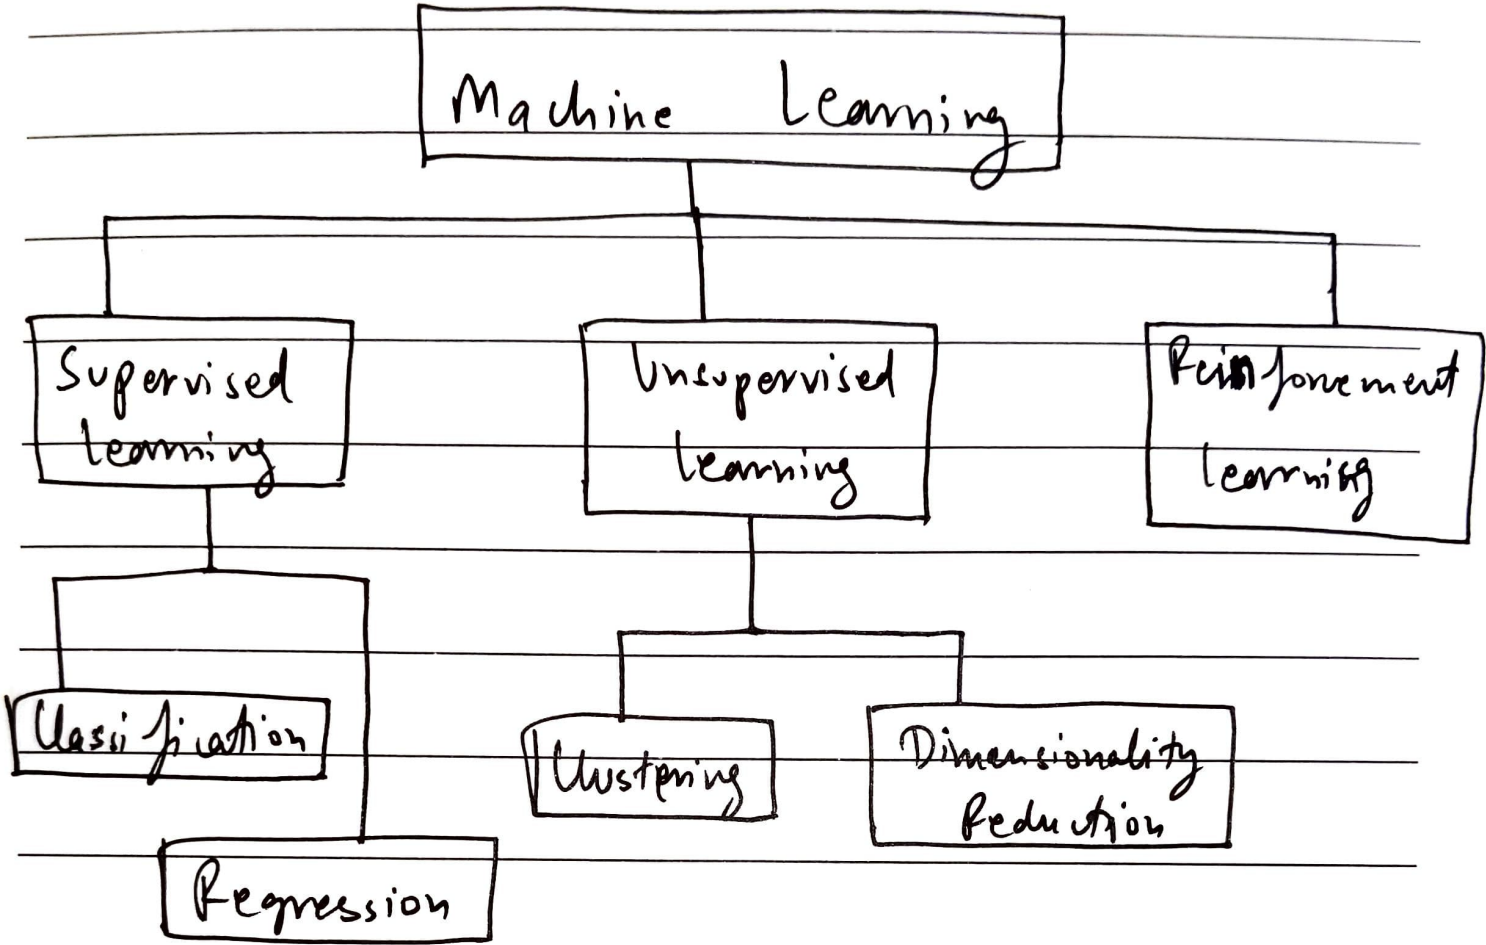 Machine Learning
Supervised
Learning
Unsupervised
Learning
Reinforcement
Learning
Classification
Clustering
Dimensionality
Reduction
Regression